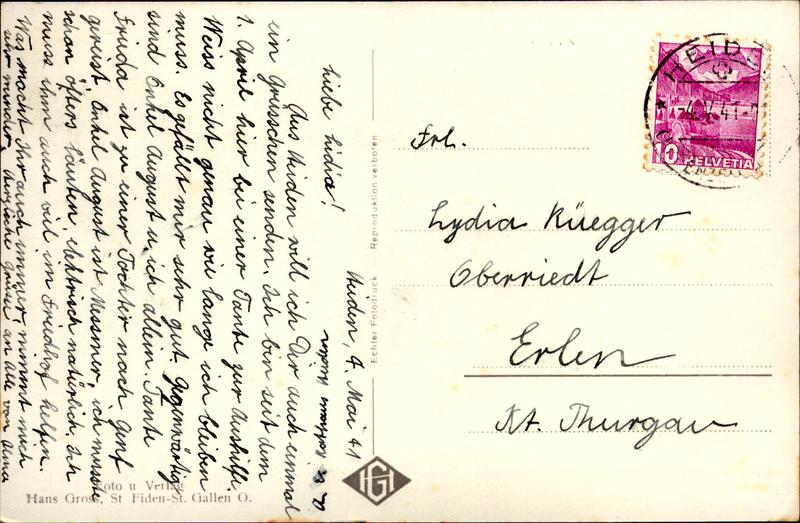 Heiden, 4. Mai 41
Liebe Lidia!
Aus Heiden will ich Dir auch einmal
ein Grüsschen senden. Ich bin seit dem
1. April hier bei einer Tante zur Aushilfe.
Weiss nicht genau wie lange ich bleiben
muss. Es gefällt mir sehr gut. Gegenwärtig
sind Onkel August u. ich allein. Tante
Frieda ist zu einer Tochter nach Genf
gereist. Onkel August ist Messmer, ich musste
schon öfters läuten, elektrisch natürlich. Ich
muss ihm auch viel im Friedhof helfen.
Was macht Ihr auch immer, nimmt mich
sehr wunder. Herzliche Grüsse an Alle von Alma
Foto u Verlag
Hans Gross, St Fiden-St. Gallen O.
Echter Fotodruck Reproduktion verboten
HGI
Frl.
Lydia Rüegger
Oberriedt
Erlen
Kt. Thurgau
HEIDEN
-4.V.41-
10 HELVETIA